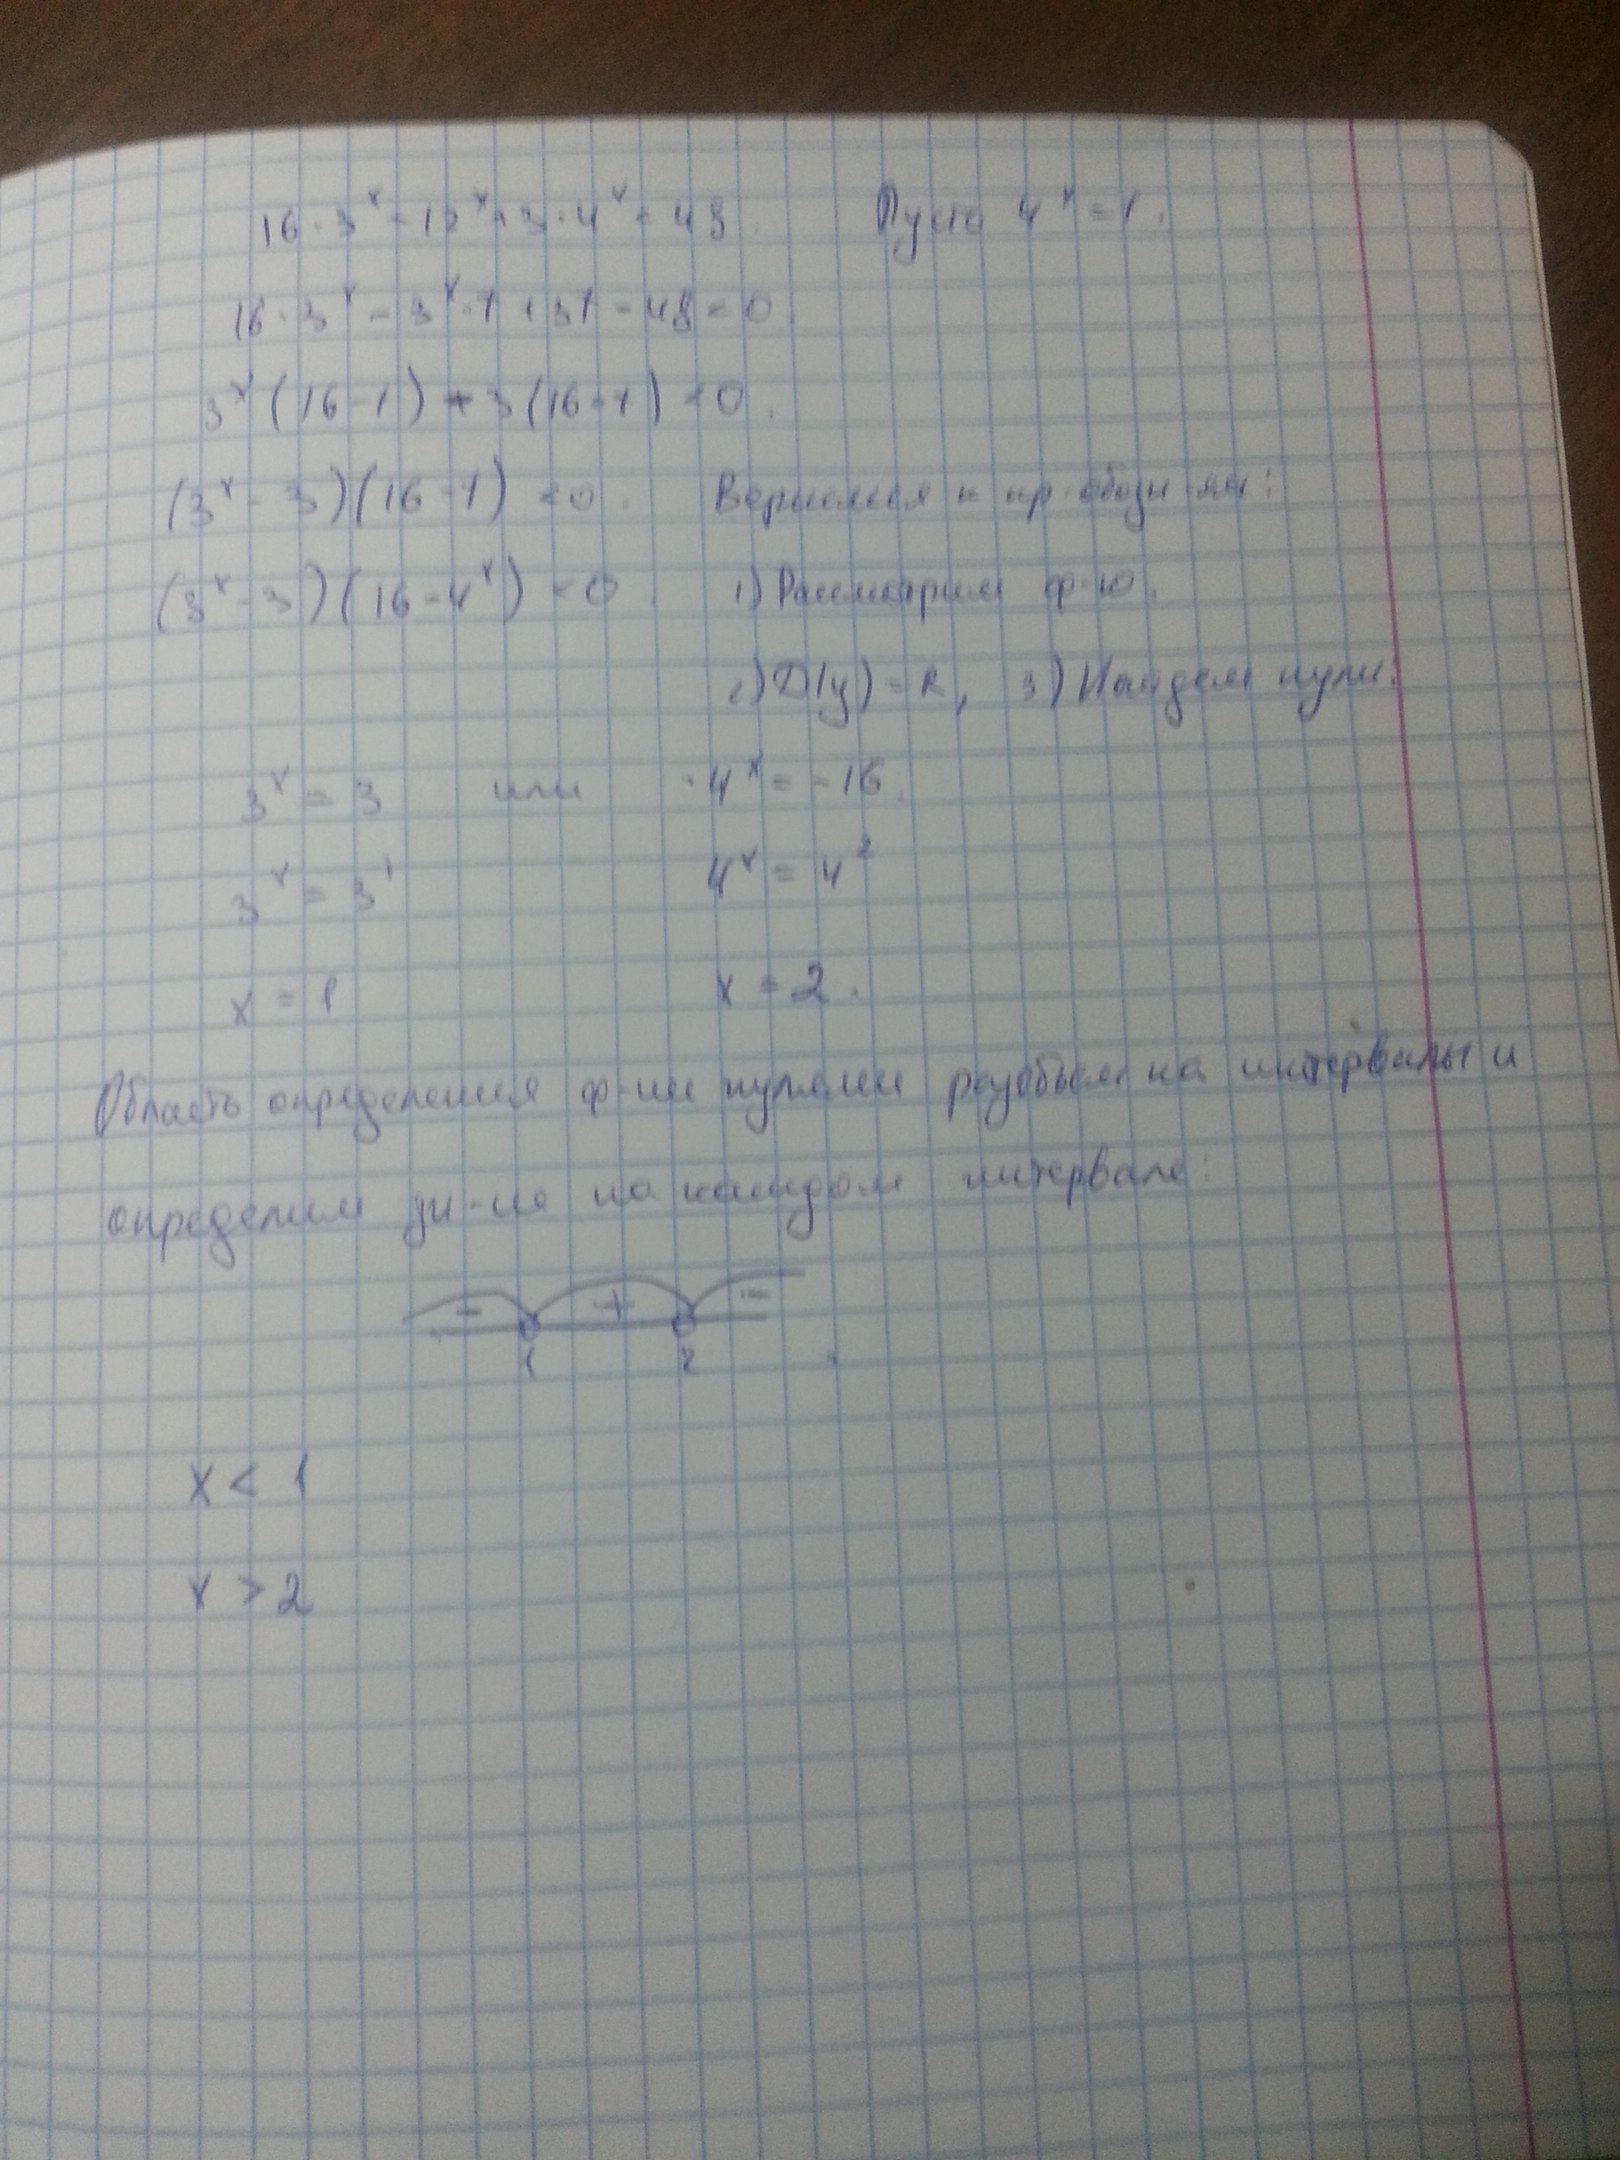 16·3ˣ - 12ˣ + 3·4ˣ < 48. Пусть 4ˣ = t.
16·3ˣ - 3ˣ·t + 3t - 48 < 0
3ˣ(16-t) - 3(16-t) < 0.
(3ˣ - 3)(16-t) < 0. Вернемся к пр. обозн-ям:
(3ˣ-3)(16-4ˣ) < 0 1) Рассмотрим ф-ю.
2) D(y) = R, 3) Найдем нули.
3ˣ = 3 или -4ˣ = -16.
3ˣ = 3¹ 4ˣ = 4²
x = 1 x = 2.
Область определения ф-ии нулями разобьем на интервалы и
определим зн-ие на каждом интервале:
- + -
1 2
x < 1
x > 2